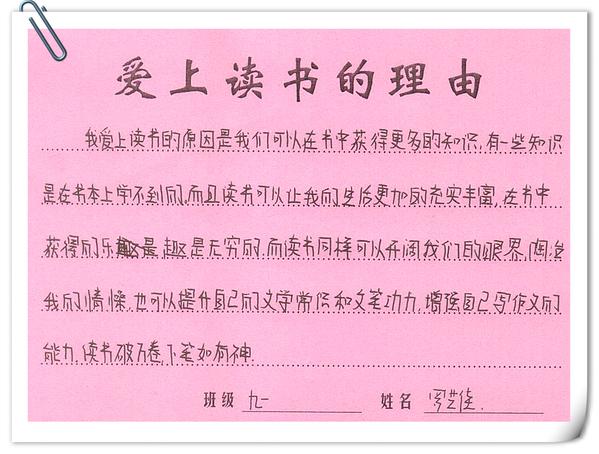 爱上读书的理由
我爱上读书的原因是我们可以在书中获得更多的知识,有一些知识
是在书本上学不到的,而且读书可以让我的生活更加的充实丰富,在书中
获得的乐趣是无穷的,而读书同样可以开阔我们的眼界,陶冶
我的情操,也可以提升自己的文学常识和文笔功力,增强自己写作文的
能力,读书破万卷,下笔如有神.
班级 九一 姓名 罗艺佳.